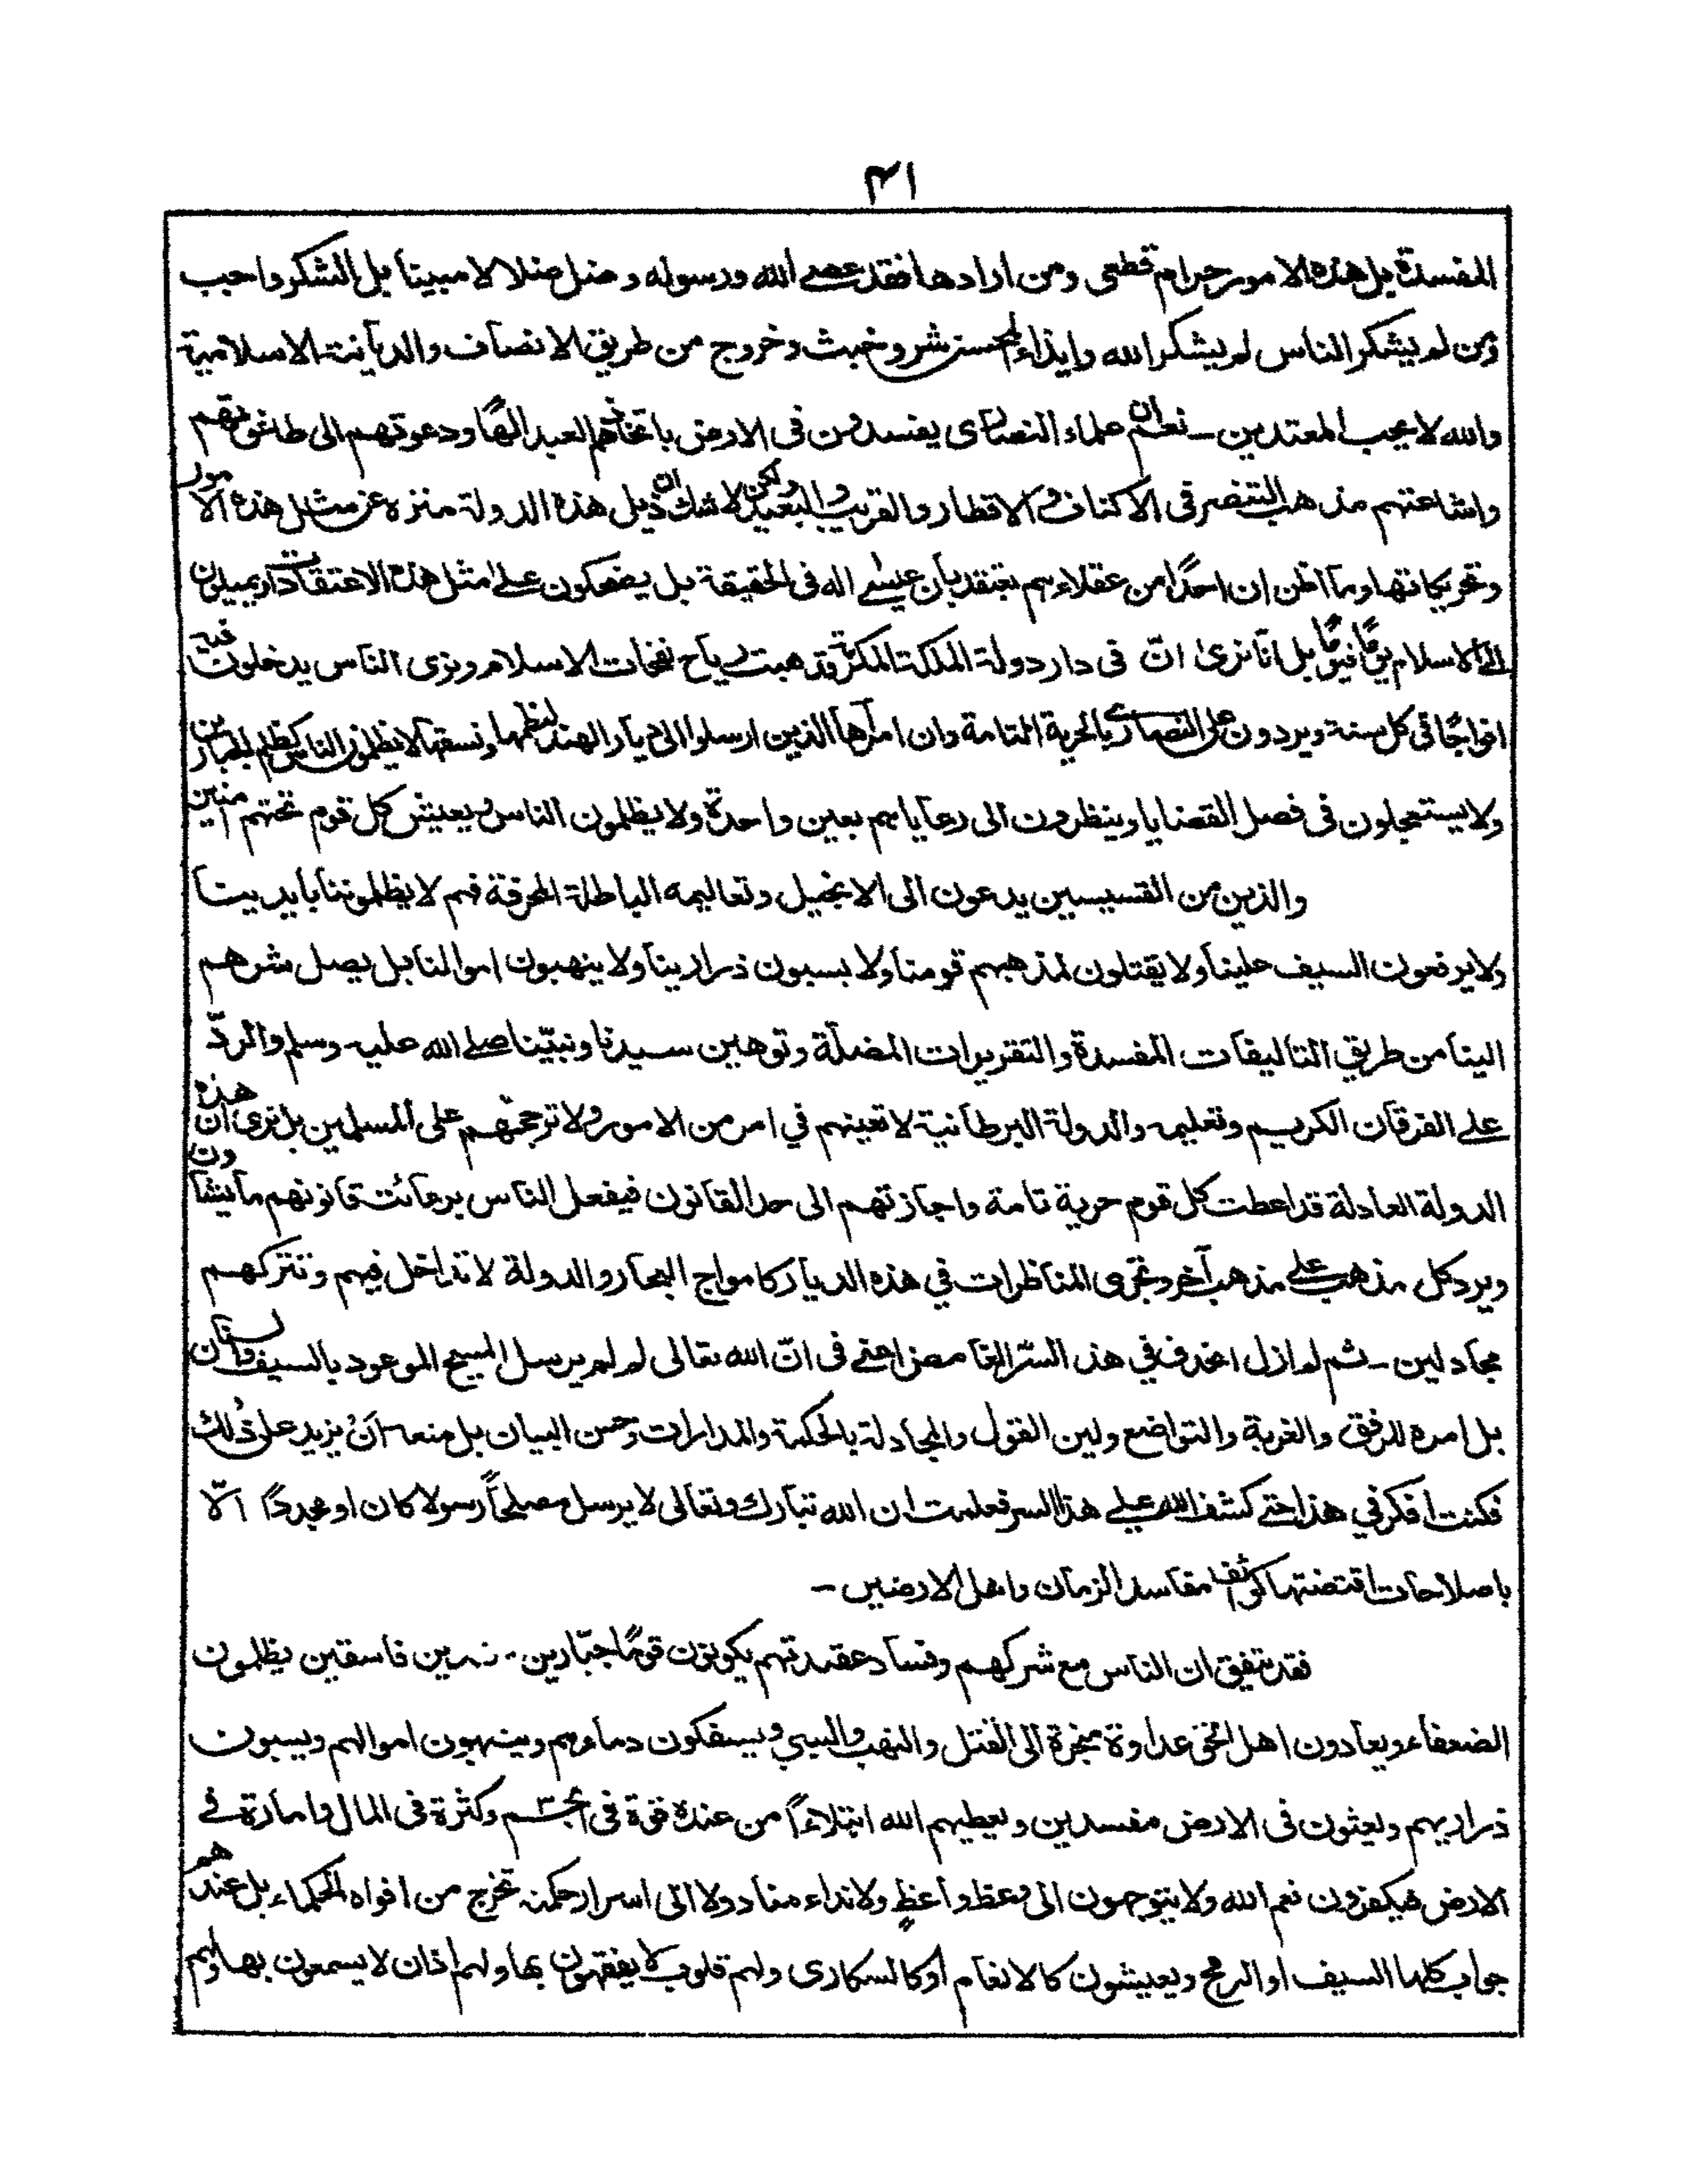 ۴۱
المفسدة بل هذه الامور حرام قطعى ومن ارادها فقد عصے الله ورسوله وضل ضلالا مبينا بل الشكر واجب
ومن لم يشكر الناس لم يشكر الله وايذاء المحسن شر وخبث وخروج من طريق الانصاف والديانة الاسلامية
والله لا يحب المعتدين ـ نعم ان علماء النصارى يفسدون فى الارض باتخاذهم العبد الٰهًا ودعوتهم الى طاغوتهم
واشاعتهم مذهب التنصر فى الاكناف والاقطار والقريب والبعيد ولكن لا شك ان ذيل هذه الدولة منزه عن مثل هذه الامور
وتحريكاتها وما اظن ان احدًا من عقلاءهم يعتقد بان عيسٰے اله فى الحقيقة بل يضحكون علے مثل هذه الاعتقادات ويميلون
الے الاسلام يومًا فيومًا بل انا نرى انّ فى دار دولة الملكة المكرمة قد هبت رياح نفحات الاسلام ونرى الناس يدخلون فيه
افواجًا فى كل سنة ويردون على النصارے بالحرية التامة وان امراءها الذين ارسلوا الى ديار الهند لنظمها ونسقها لا يظلمون الناس كظلم الجبارين
ولا يستعجلون فى فصل القضايا وينظرون الى رعاياهم بعين واحدة ولا يظلمون الناس ويعيش كل قوم تحتهم آمنين
والذين من القسيسين يدعون الى الانجيل وتعاليمه الباطلة المحرفة فهم لا يظلموننا بايديهم
ولا يرفعون السيف علينا ولا يقتلون لمذهبهم قومنا ولا يسبون ذرارينا ولا ينهبون اموالنا بل يصل شرهم
الينا من طريق التاليفات المفسدة والتقريرات المضلّة وتوهين سيدنا ونبيّنا صلے الله عليه وسلم والردّ
علے الفرقان الكريم وتعليمه والدولة البرطانية لا تعينهم في امر من الامور ولا ترجحهم على المسلمين بل نرى ان هذه
الدولة العادلة قد اعطت كل قوم حرية تامة واجازتهم الى حد القانون فيفعل الناس برعائت قانونهم ما يشاءون
ويرد كل مذهب علے مذهب آخر وتجرى المناظرات في هذه الديار كامواج البحار والدولة لا تداخل فيهم وتتركهم
مجادلين ـ ثم لم ازل في هذ السرّ الغامض اعنے فى انّ الله تعالى لم لم يرسل المسيح الموعود بالسيف والسنان
بل امره للرفق والغربة والتواضع ولين القول والمجادلة بالحكمة والمدارات وحسن البيان بل منعه انْ يزيد على ذٰلك
فكنت افكر في هذا حتے كشف الله علے هذا السر فعلمت ان الله تبارك وتعالى لا يرسل مصلحًا رسولا كان او مجددًا الّا
باصلاحات اقتضتها كوائف مفاسد الزمان واهل الارضين ـ
فقد يتفق ان الناس مع شركهم وفساد عقيدتهم يكونون قومًا جبّارين فاسقين يظلمون
الضعفاء ويعادون اهل الحق عداوة منجرة الى القتل والنهب والسبي ويسفكون دماءهم وينهبون اموالهم ويسبون
ذراريهم ويعثون فى الارض مفسدين ويعطيهم الله ابتلاءً من عنده قوة فى الجسم وكثرة فى المال وامارة فے
الارض فيكفرون نعم الله ولا يتوجهون الى وعظ واعظٍ ولا نداء مناد ولا الى اسرار حكمة تخرج من افواه الحكماء بل عندهم
جواب كلها السيف او الرمح ويعيشون كالانعام او كالسكارى ولهم قلوب لا يفقهون بها ولهم اذان لا يسمعون بها ولهم